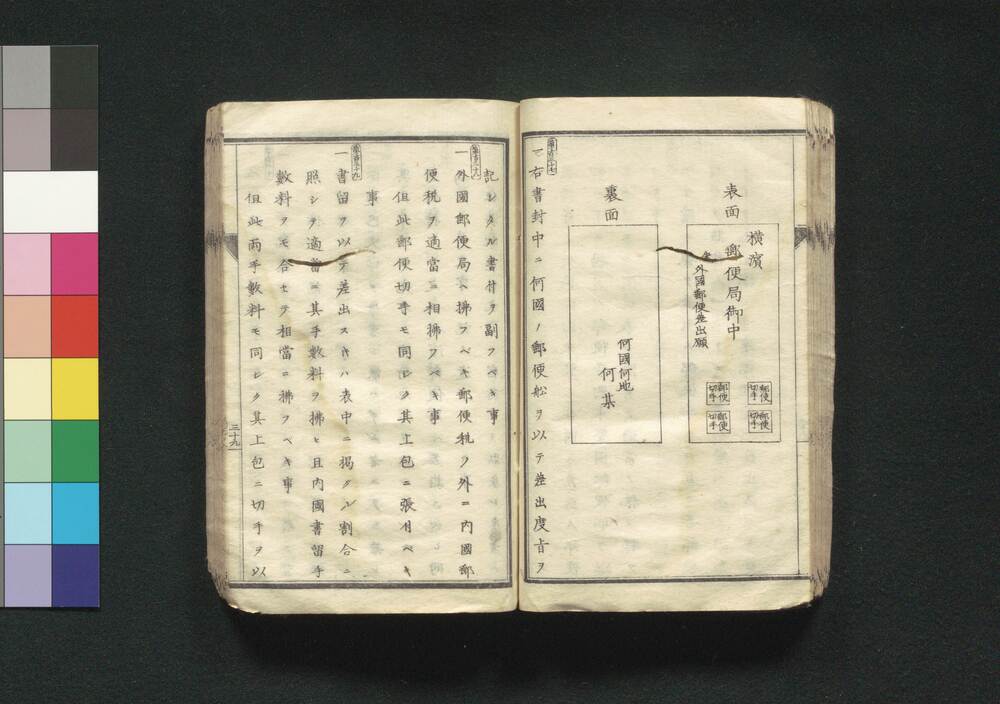 表面
横濱
郵便局御中
外國郵便差出願
郵便切手
郵便切手
郵便切手
郵便切手
裏面
何國何地
何某
第百三十七
一右書封中ニ何國ノ郵便舩ヲ以テ差出度旨ヲ
記シタル書付ヲ副フベキ事
第百三十八
一外國郵便局ヘ拂フベキ郵便税ノ外ニ内國郵
便税ヲ適當ニ相拂フベキ事
但此郵便切手モ同シク其上包ニ張付ベキ
事
第百三十九
一書留ヲ以テ差出スキハ表中ニ掲クル割合ニ
照シテ適當ニ其手數料ヲ拂ヒ且内國書留手
數料ヲモ合セテ相當ニ拂フベキ事
但此兩手數料モ同シク其上包ニ切手ヲ以
三十九